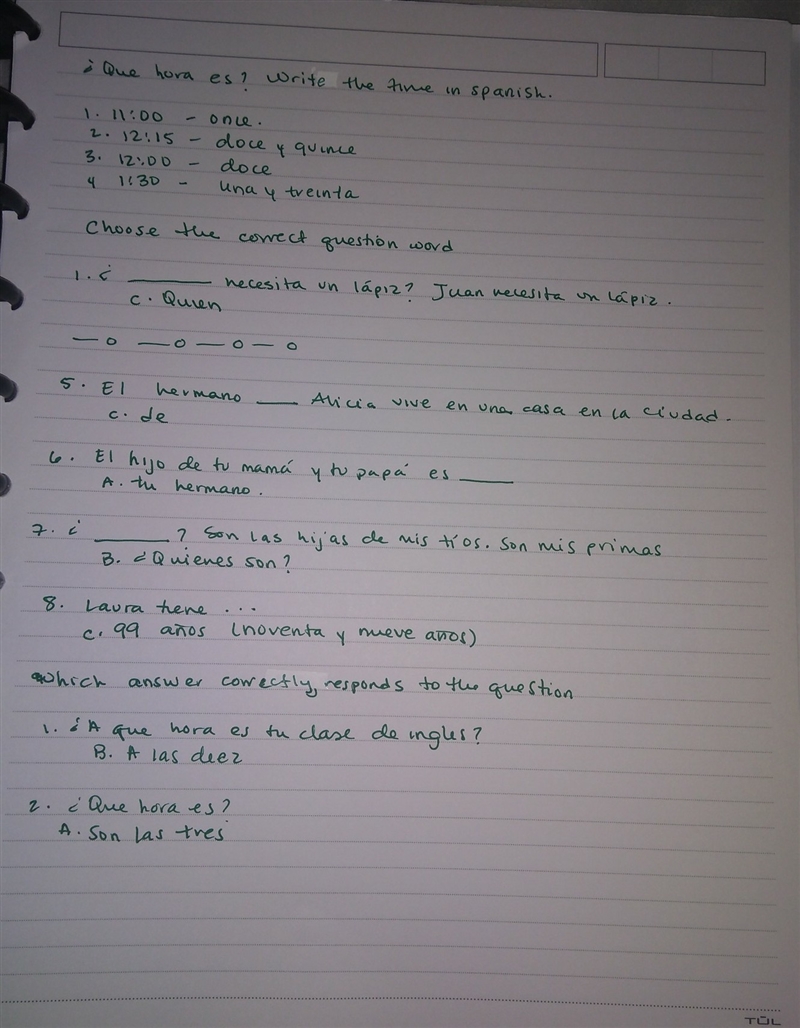 ¿Que hora es? Write the time in spanish.
1. 11:00 - once.
2. 12:15 - doce y quince
3. 12:00 - doce
4 1:30 - una y treinta
Choose the correct question word
1. ¿ ______ necesita un lápiz? Juan necesita un lápiz.
C. Quien
— o — o — o — o
5. El hermano ___ Alicia vive en una casa en la ciudad.
C. de
6. El hijo de tu mamá y tu papá es ____
A. tu hermano.
7. ¿ ______? Son las hijas de mis tíos. Son mis primas
B. ¿Quienes son?
8. Laura tiene ...
C. 99 años (noventa y nueve años)
Which answer correctly responds to the question
1. ¿A que hora es tu clase de ingles?
B. A las diez
2. ¿Que hora es?
A. Son las tres
TŪL